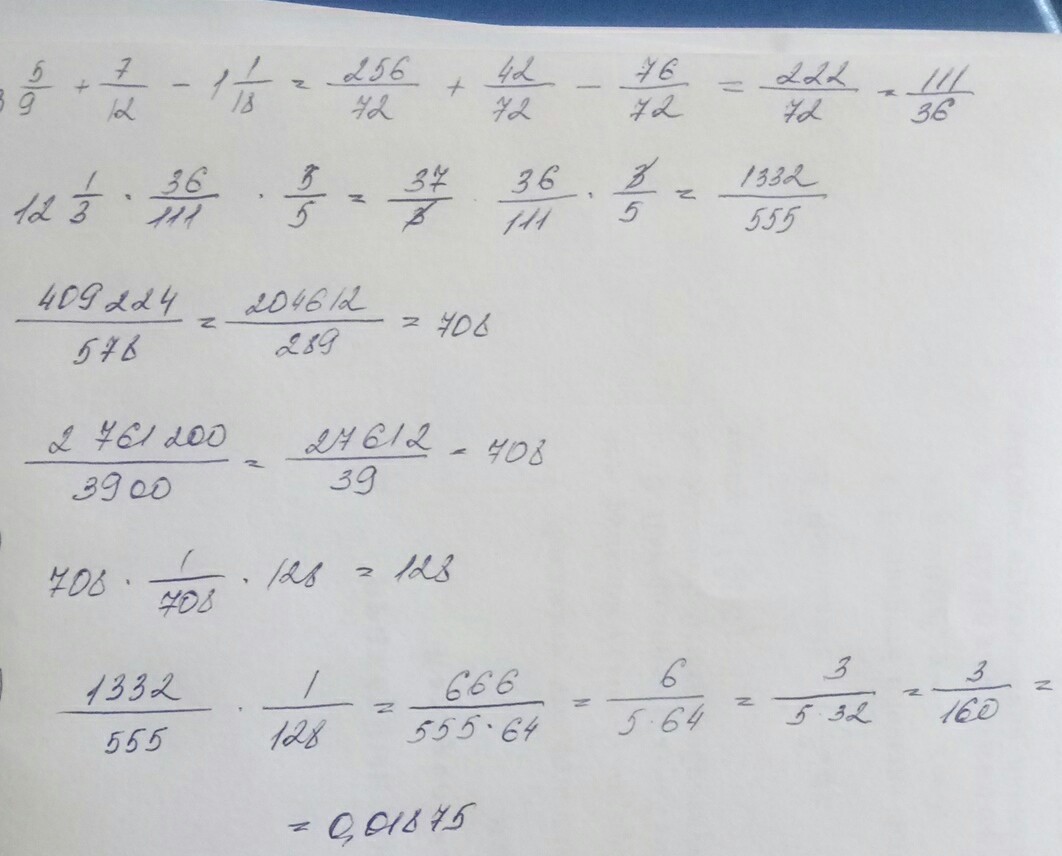 3 5/9 + 7/12 - 1 1/18 = 256/72 + 42/72 - 76/72 = 222/72 = 111/36
12 1/3 · 36/111 · 3/5 = 37/3 · 36/111 · 3/5 = 1332/555
409224/578 = 204612/289 = 708
2 761 200/3900 = 27612/39 = 708
708 · 1/708 · 128 = 128
1332/555 · 1/128 = 666/555·64 = 6/5·64 = 3/5·32 = 3/160 =
= 0,01875